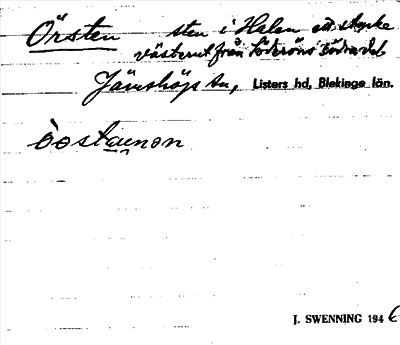 Örsten sten i Halen ett stycke
västerut från Söderöns södra del
Jämshögs sn, Listers hd, Blekinge län.
òostaunən
J. SWENNING 1946